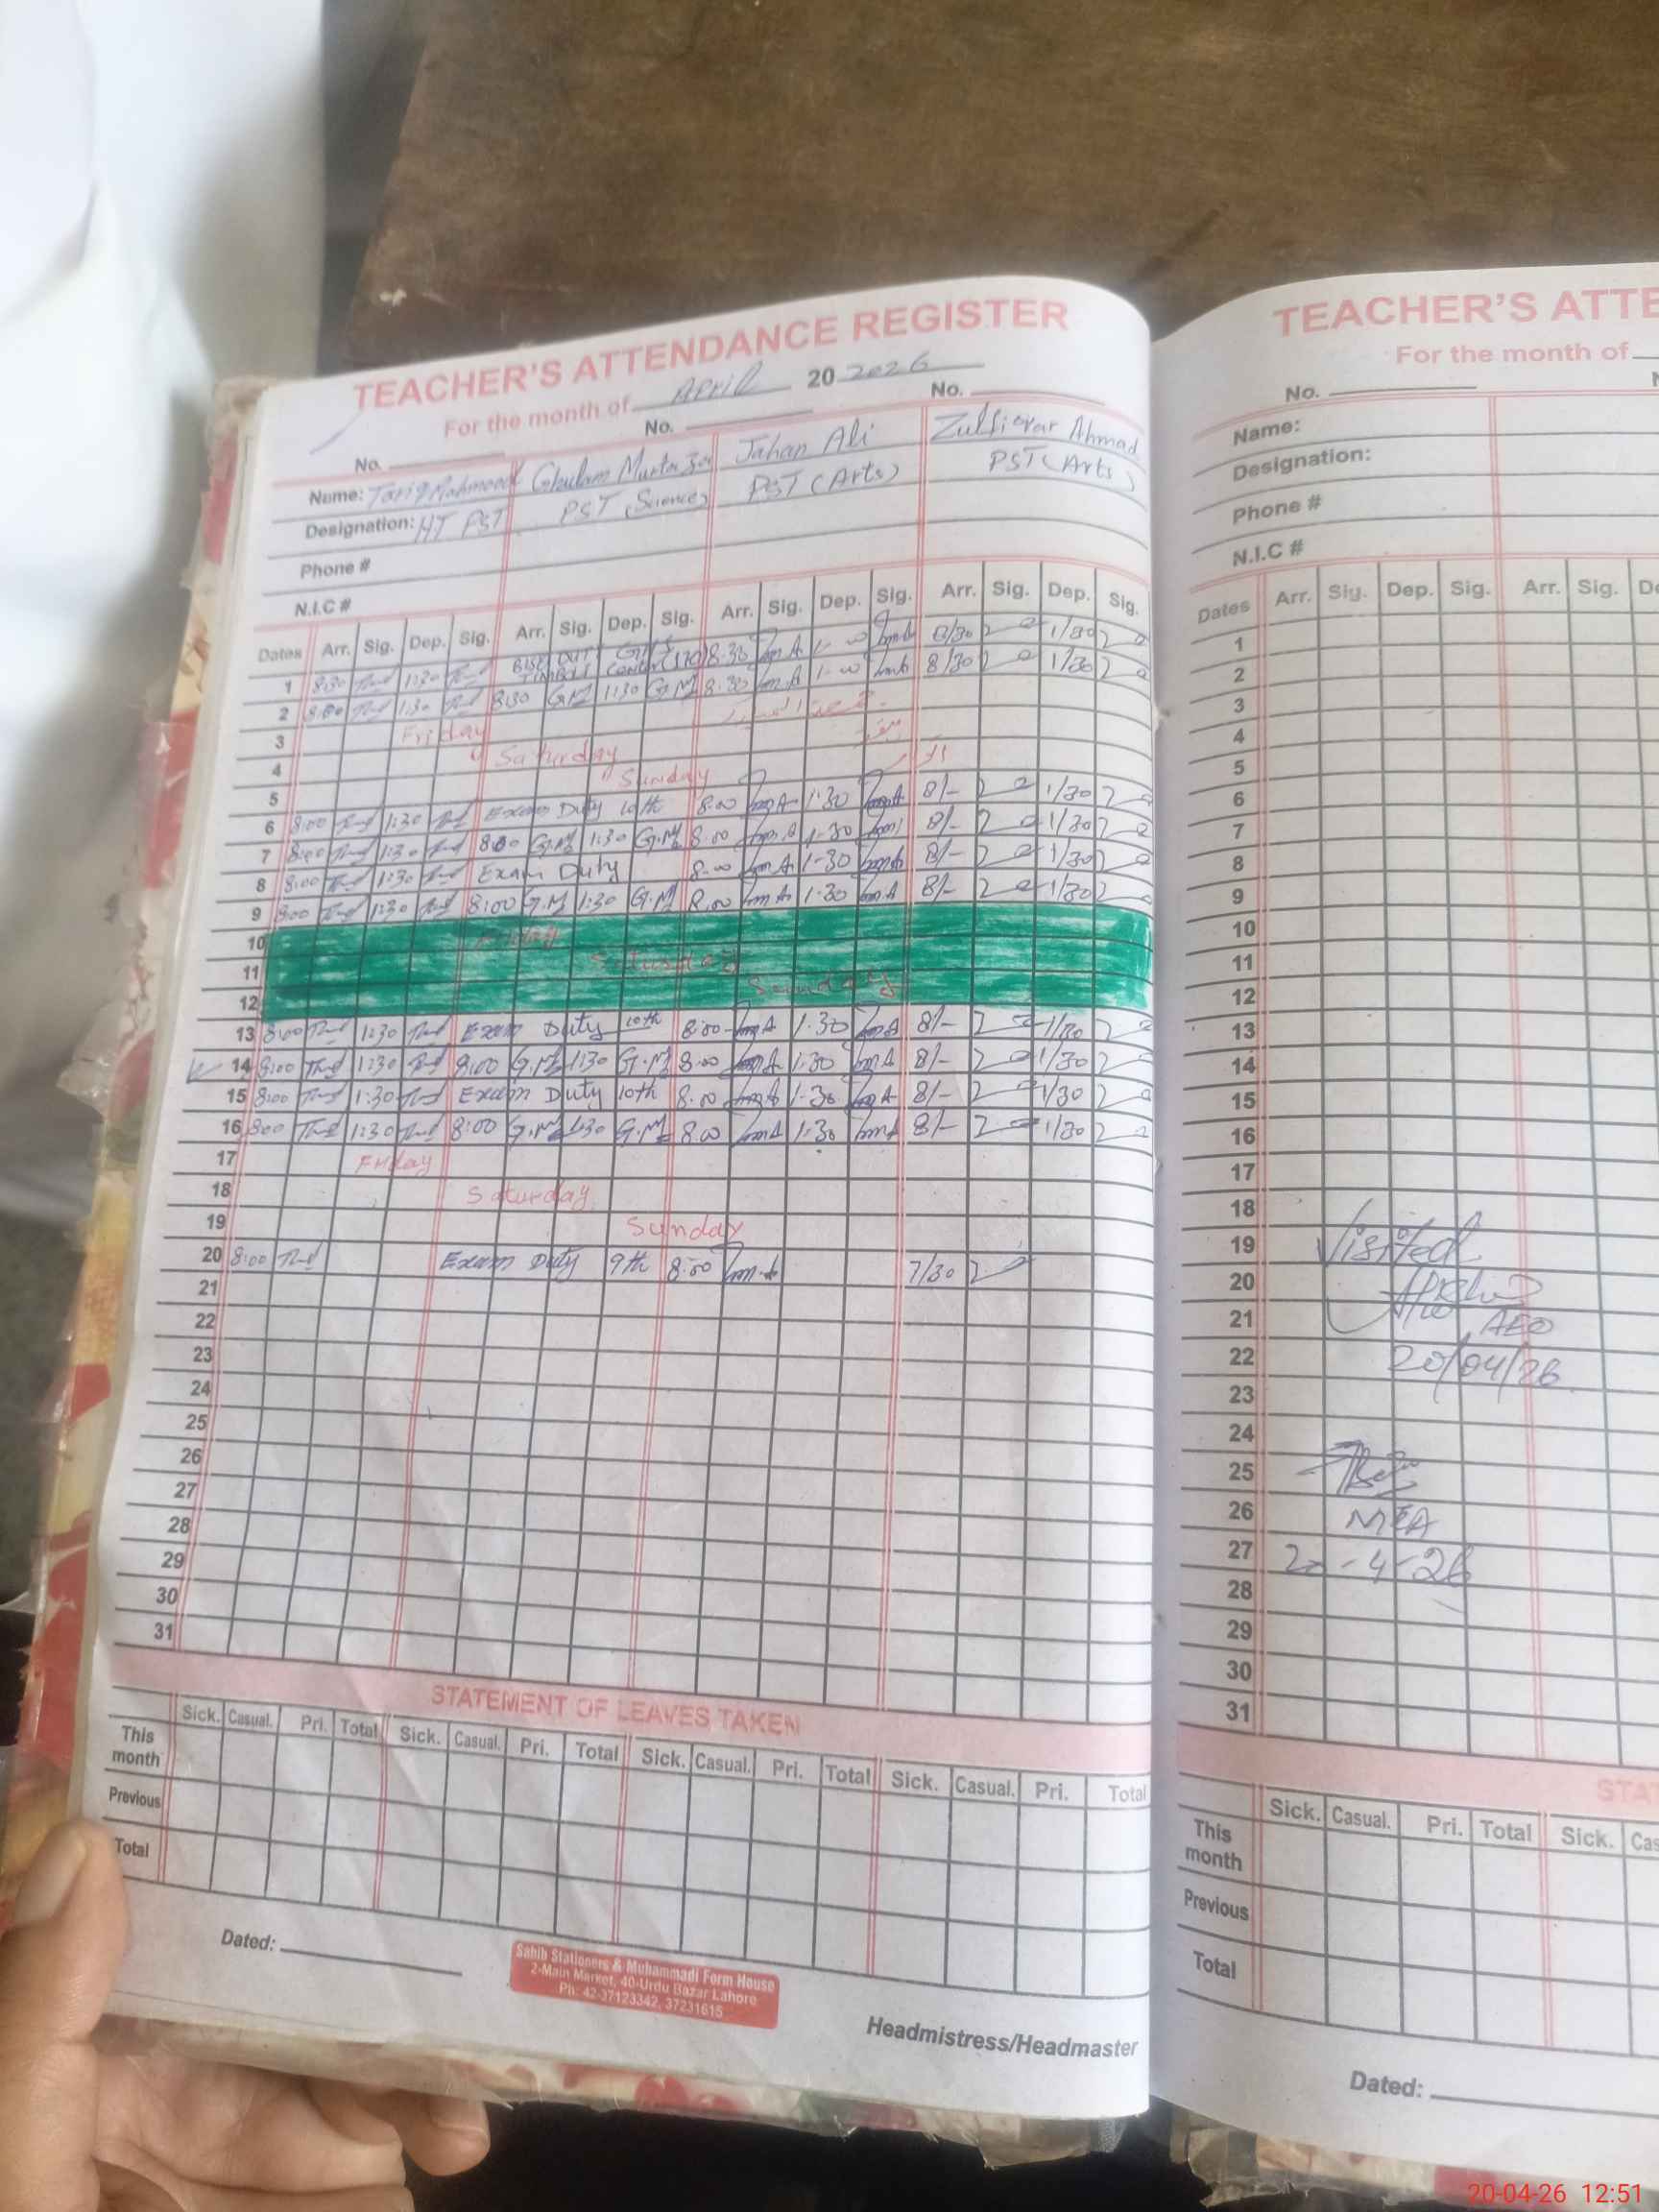 TEACHER'S ATTENDANCE REGISTER
For the month of April 20 2026
No. No. No.
Name: Tariq Mahmood Ghulam Murtaza Jahan Ali Zulfiqar Ahmad
Designation: HT PST PST (Science) PST (Arts) PST (Arts)
Phone #
N.I.C #
Dates Arr. Sig. Dep. Sig. Arr. Sig. Dep. Sig. Arr. Sig. Dep. Sig. Arr. Sig. Dep. Sig.
1 8:30 1:30 8:30 1-00 8/30 1/30
2 1:30 8:30 G.M 1:30 G.M 8:30 1-00 8/30 1/30
3 Friday
4 Saturday
5 Sunday
6 8:00 1:30 Exam Duty 10th 8:00 1:30 8/- 1/30
7 8:00 1:30 8:00 G.M 1:30 G.M 8:00 1-30 8/- 1/30
8 8:00 1:30 Exam Duty 8:00 1-30 8/- 1/30
9 8:00 1:30 8:00 G.M 1:30 G.M 8:00 1-30 8/- 1/30
10 Friday
11 Saturday
12 Sunday
13 8:00 1:30 Exam Duty 10th 8:00 1:30 8/- 1/30
14 8:00 1:30 8:00 G.M 1:30 G.M 8:00 1:30 8/- 1/30
15 8:00 1:30 Exam Duty 10th 8:00 1-30 8/- 1/30
16 8:00 1:30 8:00 G.M 1:30 G.M 8:00 1-30 8/- 1/30
17 Friday
18 Saturday
19 Sunday
20 8:00 Exam Duty 9th 8:00 7/30
21
22
23
24
25
26
27
28
29
30
31
STATEMENT OF LEAVES TAKEN
Sick. Casual. Pri. Total Sick. Casual. Pri. Total Sick. Casual. Pri. Total Sick. Casual. Pri. Total
This month
Previous
Total
Dated:
Sahib Stationers & Muhammadi Form House
2-Main Market, 40-Urdu Bazar Lahore
Ph: 42-37123342, 37231615
Headmistress/Headmaster
TEACHER'S ATTE
For the month of
No.
Name:
Designation:
Phone #
N.I.C #
Dates Arr. Sig. Dep. Sig. Arr. Sig. De
1
2
3
4
5
6
7
8
9
10
11
12
13
14
15
16
17
18
19 Visited
20
21 AEO
22 20/04/26
23
24
25
26 MEA
27 20-4-26
28
29
30
31
STA
Sick. Casual. Pri. Total Sick. Cas
This month
Previous
Total
Dated:
20-04-26 12:51